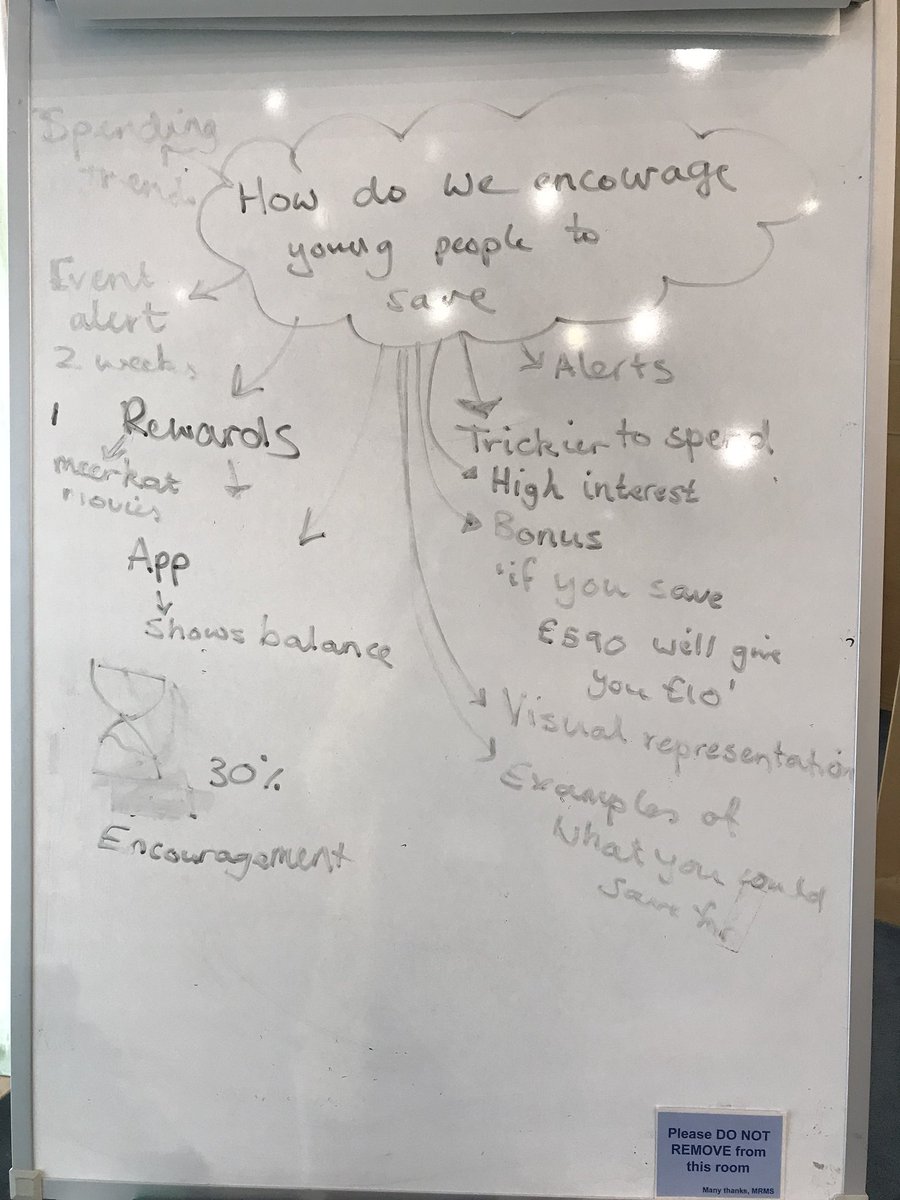 How do we encourage
young people to
save
Spending
trends
Event
alert
2 weeks
1 Rewards
meerkat
movies
App
shows balance
30%
Encouragement
Alerts
Trickier to spend
High interest
Bonus
'if you save
£590 will give
you £10'
Visual representation
Examples of
what you could
save for
Please DO NOT
REMOVE from
this room
Many thanks, MRMS